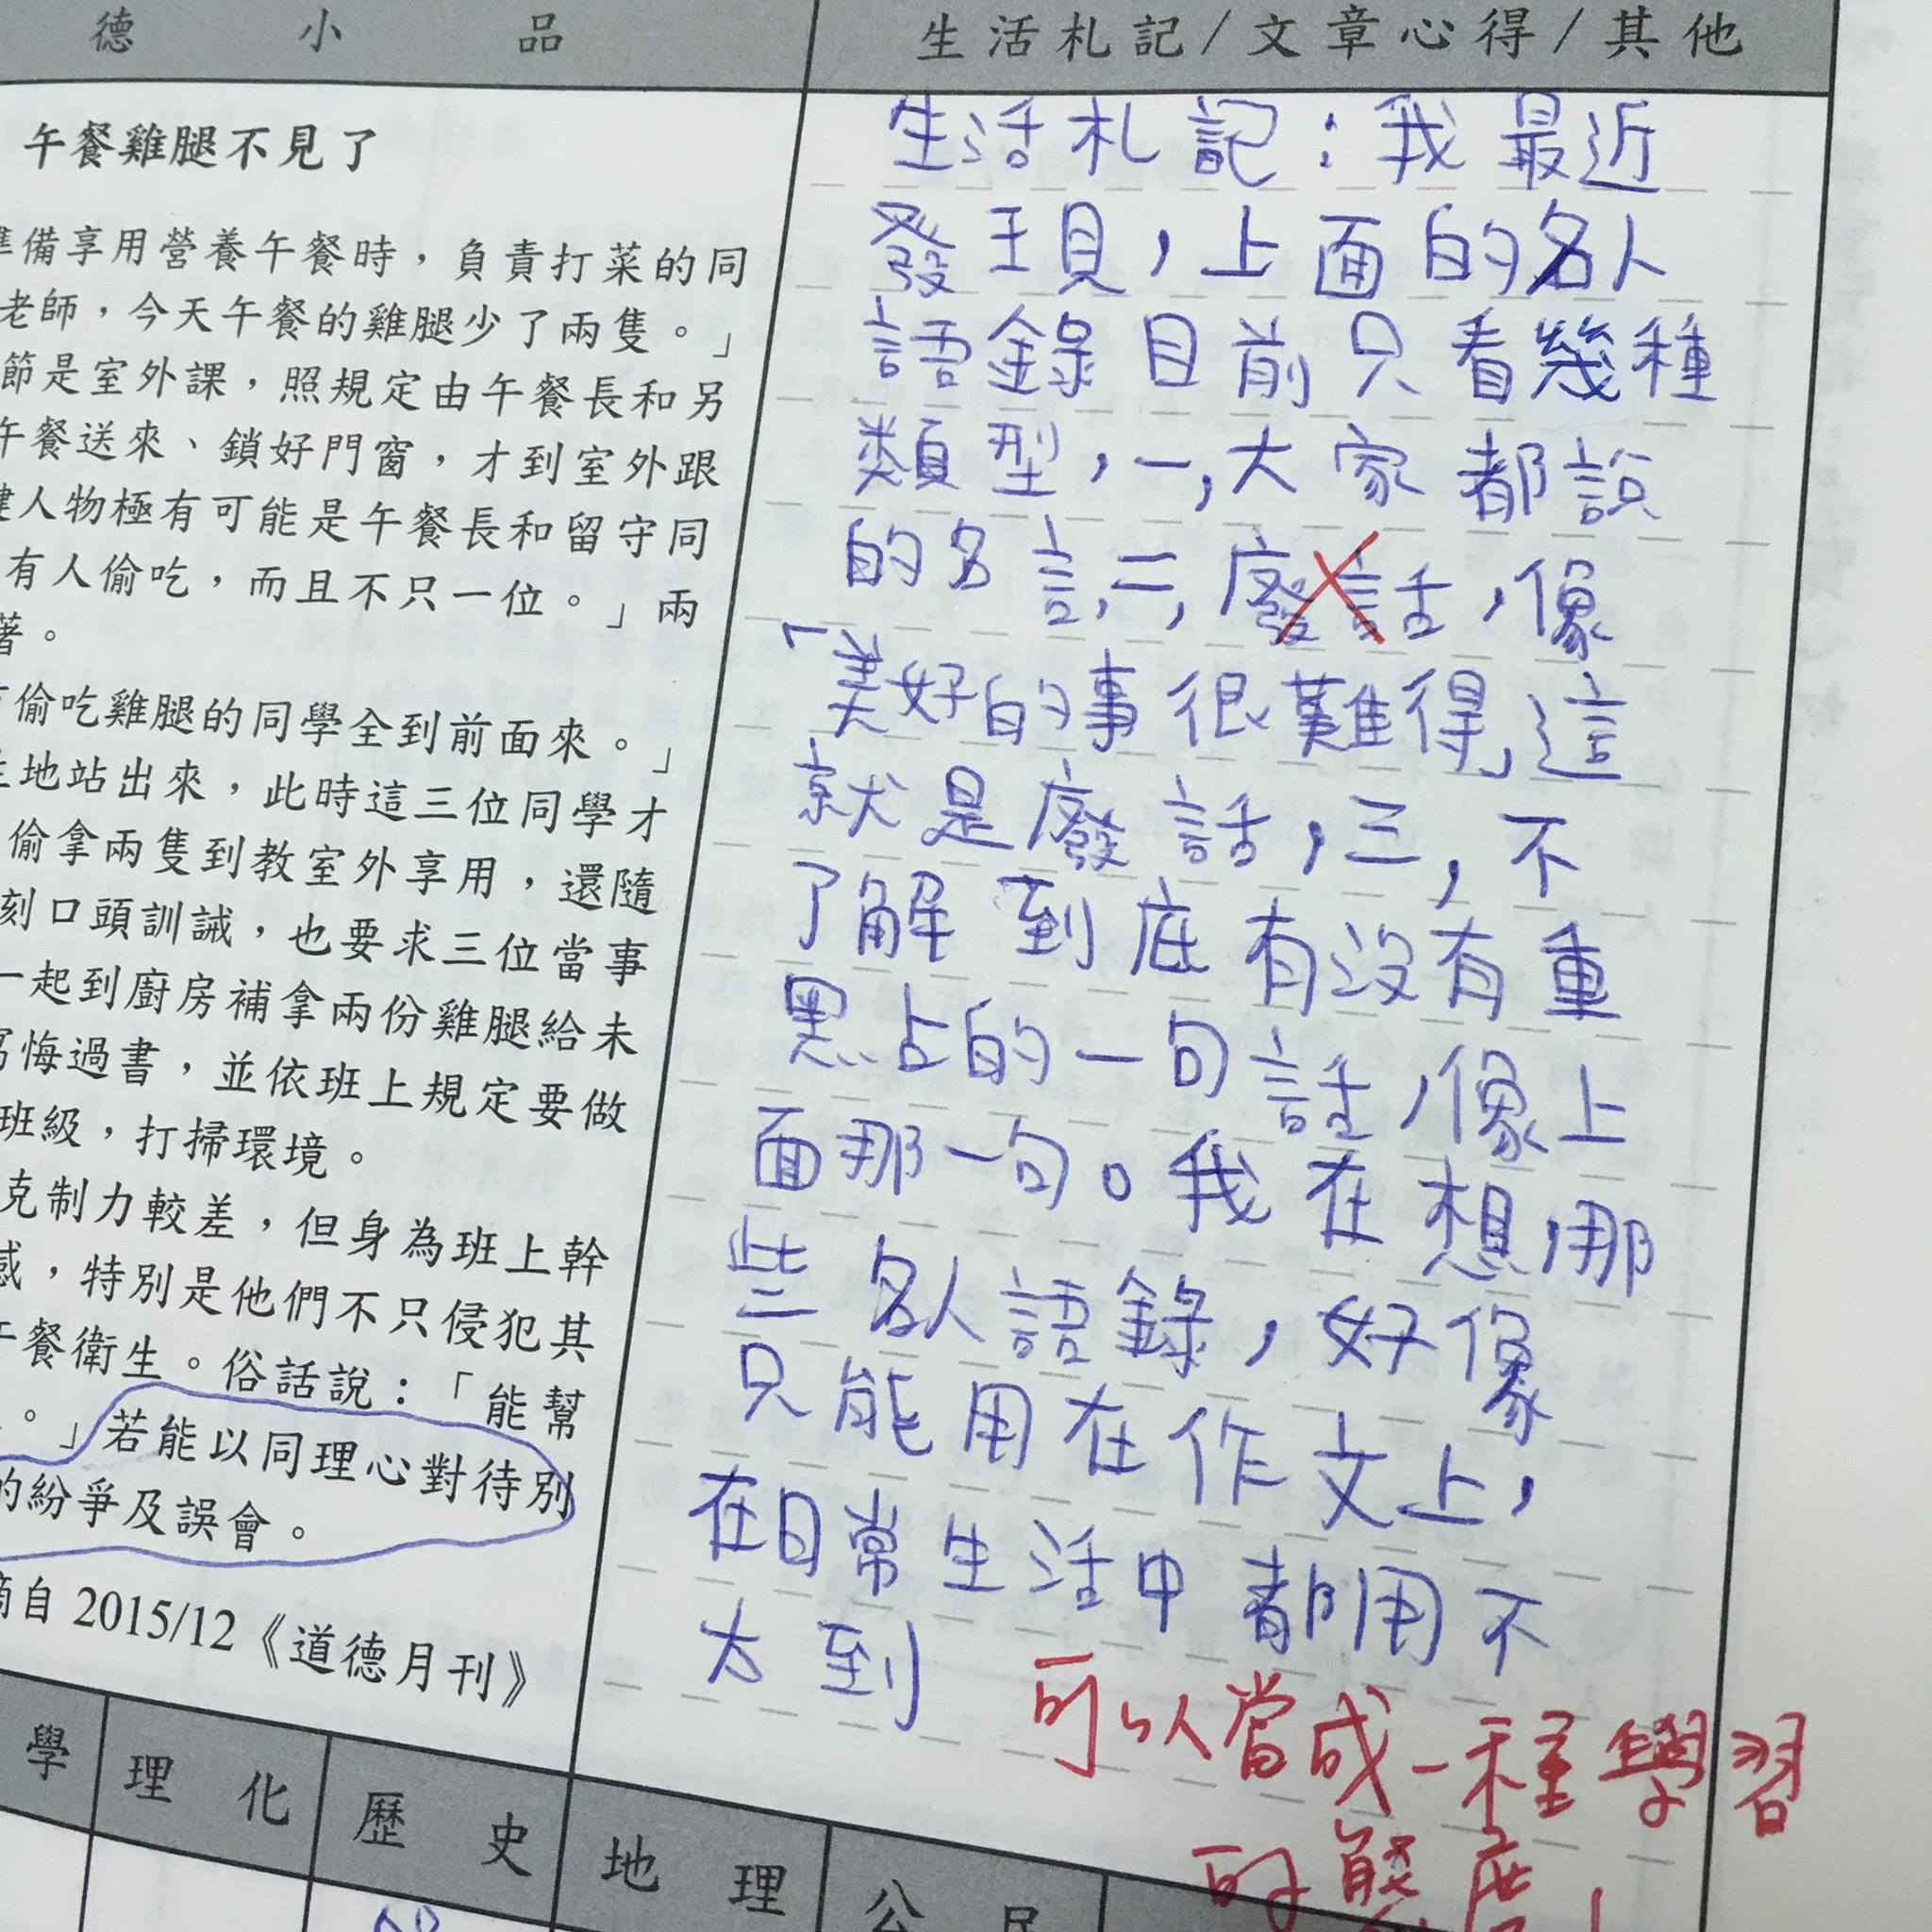 德小品
生活札記/文章心得/其他
午餐雞腿不見了
準備享用營養午餐時，負責打菜的同
老師，今天午餐的雞腿少了兩隻。」
節是室外課，照規定由午餐長和另
午餐送來、鎖好門窗，才到室外跟
鍵人物極有可能是午餐長和留守同
有人偷吃，而且不只一位。」兩
著。
偷吃雞腿的同學全到前面來。」
地站出來，此時這三位同學才
偷拿兩隻到教室外享用，還隨
刻口頭訓誡，也要求三位當事
一起到廚房補拿兩份雞腿給未
寫悔過書，並依班上規定要做
班級，打掃環境。
克制力較差，但身為班上幹
感，特別是他們不只侵犯其
午餐衛生。俗話說：「能幫
。」若能以同理心對待別
的紛爭及誤會。
摘自 2015/12《道德月刊》
生活札記：我最近
發現，上面的名人
語錄目前只看幾種
類型，一，大家都說
的名言，二，廢話，像
「美好的事很難得」這
就是廢話，三，不
了解到底有沒有重
點的一句話，像上
面那一句。我在想，那
些名人語錄，好像
只能用在作文上，
在日常生活中都用不
太到
可以當成一種學習
的態度！
學
理化
歷史
地理
公民